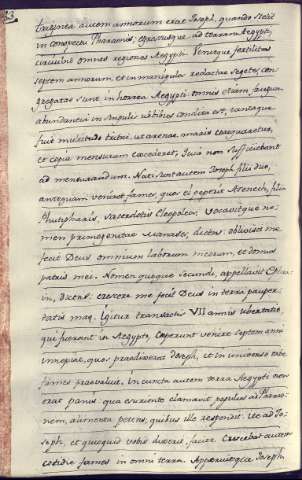 triginta autem annorum erat Joseph, quando stetit
in conspectu Pharaonis;
circuivit omnes regiones Aegypti. Venitque fertilitas
septem annorum, et in manipulos redactae segetes, con
gregatae sunt in horrea Aegypti. omnis etiam frugum
abundantia in singulis urbibus condita est, tantaque
fuit multitudo tritici ut arenae maris coequaretur,
et copia mensuram excederet,
ad mensurandum. Nati sunt autem Joseph filii duo,
antequam veniret fames, quos ei peperit Aseneth, filia
Phutipharis, sacerdotis Eliopoleos, vocavitque no
men primogeniti Manases, dicens: oblivisci me
fecit Deus omnium laborum meorum, et domus
patris mei. Nomen quoque secundi, appellavit Ephra
in, dicens: crescere me fecit Deus in terra pauper
tatis meae. Igitur transactis VII annis ubertatis,
qui fuerant in Aegypto, coeperunt venire septem anni
innopiae, quos praedixerat Joseph, et in universo orbe
fames praevaluit, in cuncta autem terra Aegypti non
erat panis, qua esuriente clamavit populus ad Pharao
nem, alimenta petens, quibus ille respondit: ite ad Jo
seph, et quidquid vobis dixerit, facite. Crescebat autem
cotidie fames in omni terra. Aperuitque Joseph